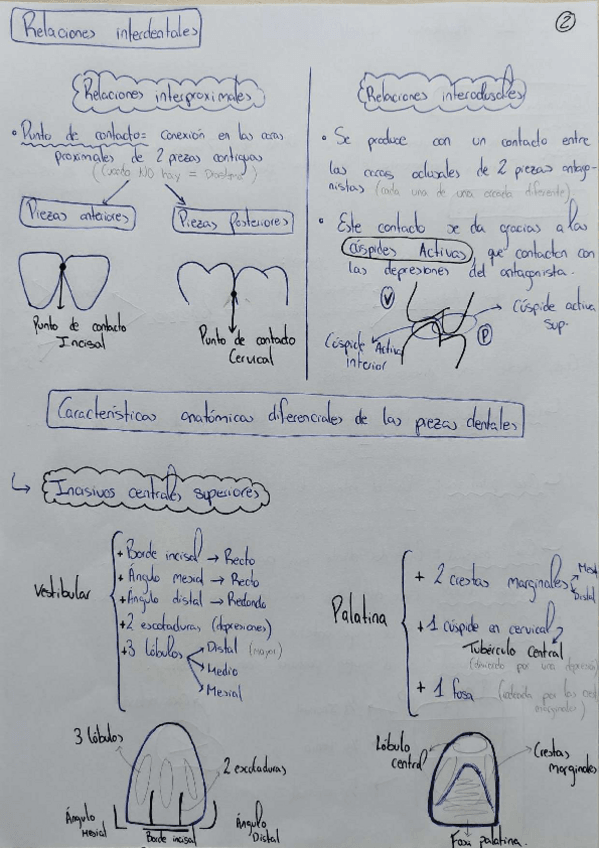 Relaciones interdentales
2
Relaciones interproximales
• Punto de contacto = conexión en las caras
proximales de 2 piezas contiguas
(cuando NO hay = Diastema)
Piezas anteriores
Piezas Posteriores
Punto de contacto
Incisal
Punto de contacto
Cervical
Relaciones interoclusales
• Se produce con un contacto entre
las caras oclusales de 2 piezas antago-
nistas (cada una de una arcada diferente)
• Este contacto se da gracias a las
Cúspides Activas, que contactan con
las depresiones del antagonista.
V
Cúspide activa
sup.
P
Cúspide Activa
Inferior
Características anatómicas diferenciales de las piezas dentales
↳ Incisivos centrales superiores
Vestibular
+ Borde incisal → Recto
+ Ángulo mesial → Recto
+ Ángulo distal → Redondo
+ 2 escotaduras (depresiones)
+ 3 lóbulos
Distal (mayor)
Medio
Mesial
Palatina
+ 2 crestas marginales
Mesi
Distal
+ 1 cúspide en cervical
Tubérculo central
por una depresión)
+ 1 fosa
por las
marginales)
3 lóbulos
2 escotaduras
Ángulo
Mesial
Borde incisal
Ángulo
Distal
Lóbulo
central
Crestas
marginales
Fosa palatina.